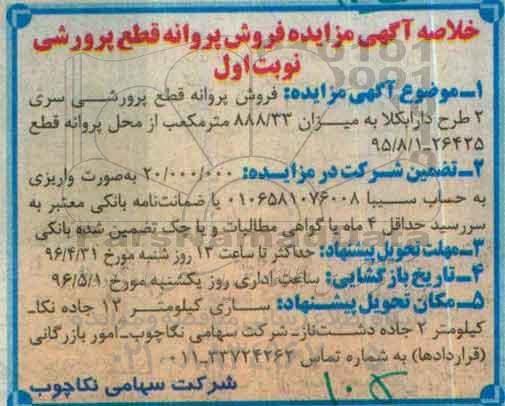 خلاصه آگهی مزایده فروش پروانه قطع پرورشی
نوبت اول
۱ـ موضوع آگهی مزایده: فروش پروانه قطع پرورشی سری
۲ طرح دارابکلا به میزان ۸۸۸/۳۳ مترمکعب از محل پروانه قطع
۲۶۴۳۵ـ۹۵/۸/۱
۲ـ تضمین شرکت در مزایده: ۲۰/۰۰۰/۰۰۰ به‌صورت واریزی
به حساب سیبا ۰۱۰۶۵۸۱۰۷۶۰۰۸ یا ضمانت‌نامه بانکی معتبر به
سررسید حداقل ۴ ماه یا گواهی مطالبات و یا چک تضمین شده بانکی
۳ـ مهلت تحویل پیشنهاد: حداکثر تا ساعت ۱۳ روز شنبه مورخ ۹۶/۴/۳۱
۴ـ تاریخ بازگشایی: ساعت اداری روز یکشنبه مورخ ۹۶/۵/۱
۵ـ مکان تحویل پیشنهاد: ساری کیلومتر ۱۲ جاده نکاـ
کیلومتر ۲ جاده دشت‌نازـ شرکت سهامی نکاچوب‌ـ امور بازرگانی
(قراردادها) به شماره تماس ۳۳۷۲۴۲۶۲ـ۰۱۱
شرکت سهامی نکاچوب